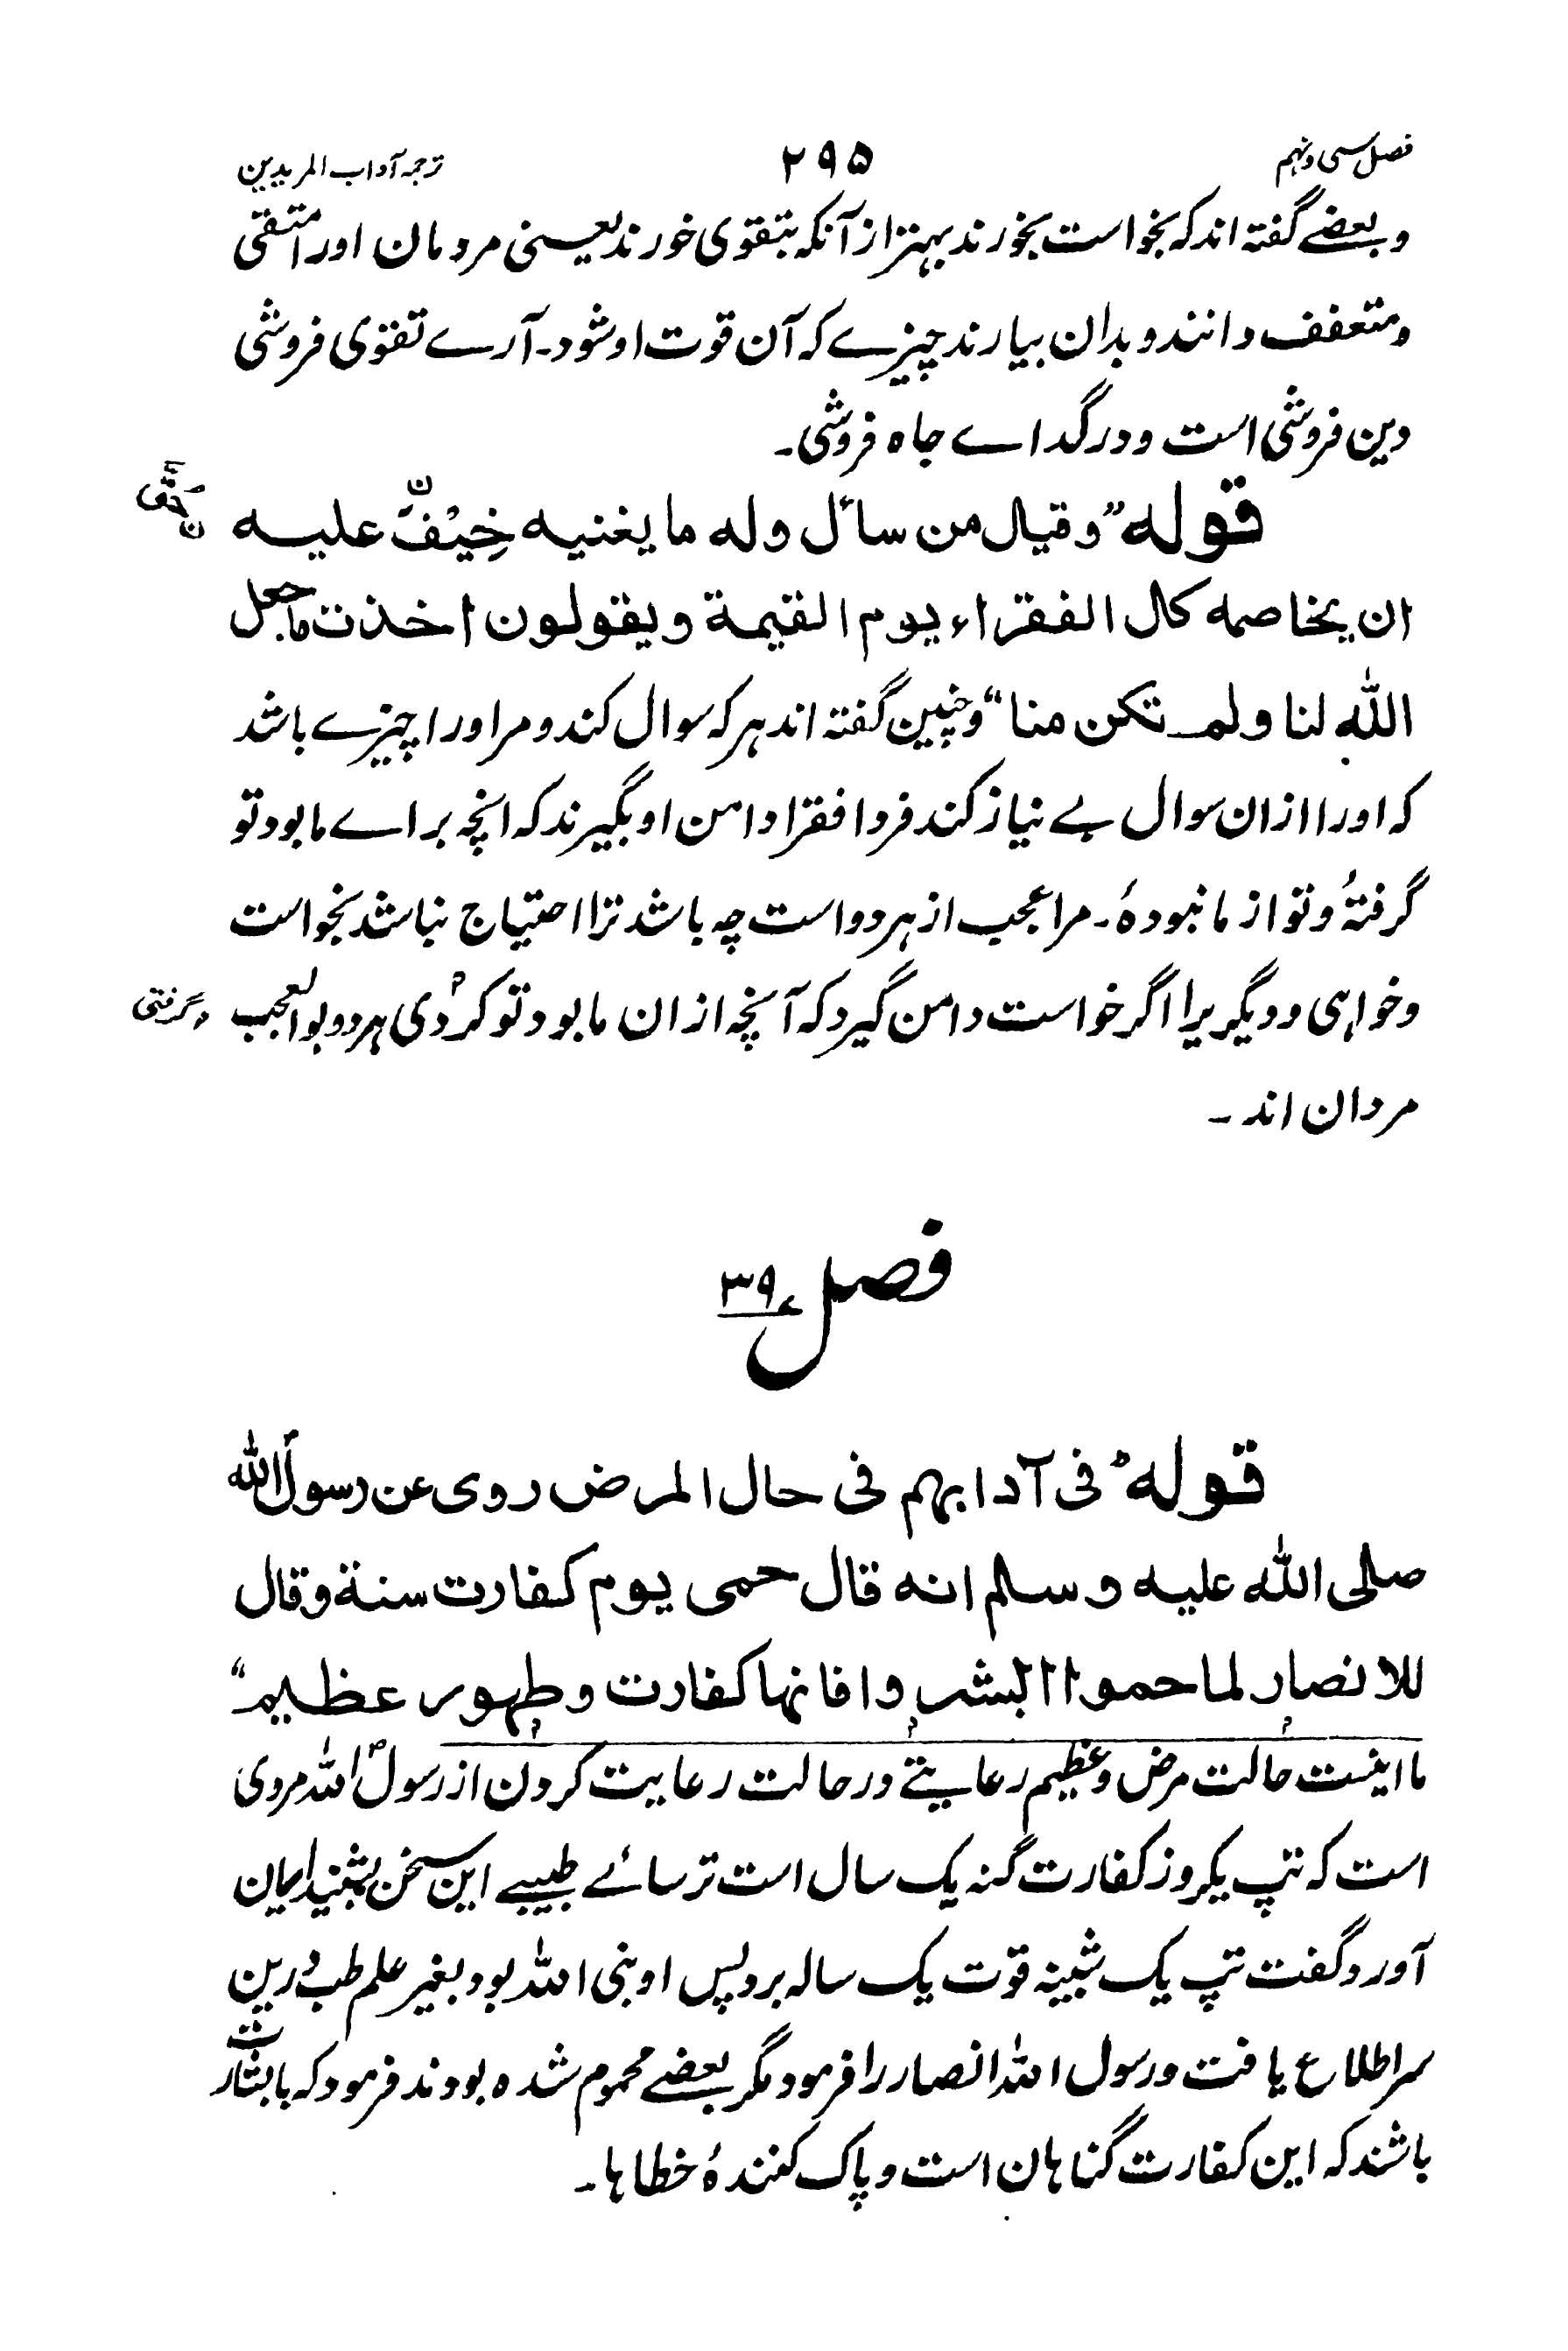 فصل سی و نہم ۲۹۵ ترجمہ آداب المریدین
و بعضے گفتہ اند کہ بخواست بخورند بہتر از آنکہ بتقوی خورند یعنی مردمان او را متقی
و متعفف دانند و بدان بیارند چیزے کہ آن قوت او شود۔ آرے تقوی فروشی
دین فروشی است و در گداے جاہ فروشی۔
قوله ”وقیل من سأل وله ما یغنیه خِیْفَّ علیه
ان یخاصمه کل الفقراء یوم القیمة ویقولون اخذت ما جعل
الله لنا ولم تکن منا“ و چنین گفتہ اند ہر کہ سوال کند و مر او را چیزے باشد
کہ او را ازان سوال بے نیاز کند فردا فقرا دامن او بگیرند کہ انچہ براے ما بود تو
گرفتۂ و تو از ما نبودۂ۔ مرا عجب از ہر دو است چہ باشد ترا احتیاج نباشد بخواست
و خواہی و دیگریرا اگر خواست دامن گیرد کہ آنچہ ازان ما بود تو کردی ہر دو بوالعجب
گرفتی
مردان اند۔
فصل ۳۹
قوله ”فی آدابهم فی حال المرض روی عن رسول الله
صلی الله علیه وسلم انه قال حمی یوم کفارت سنة وقال
للانصار لما حموا ابشروا فانها کفارت وطهور عظیم“
ما اینست حالت مرض و عظیم رعایتے در حالت رعایت کردن از رسول الله مروی
است کہ تپ یکروز کفارت گنہ یک سال است ترسائے طبیبے این سخن بشنید ایمان
آورد گفت تپ یک شبینہ قوت یک سالہ برد پس او نبی الله بود بغیر علم طب درین
سر اطلاع یافت و رسول الله انصار را فرمود مگر بعضے محموم شدہ بودند فرمود کہ با بشارت
باشند کہ این کفارت گناہان است و پاک کنندۂ خطاہا۔